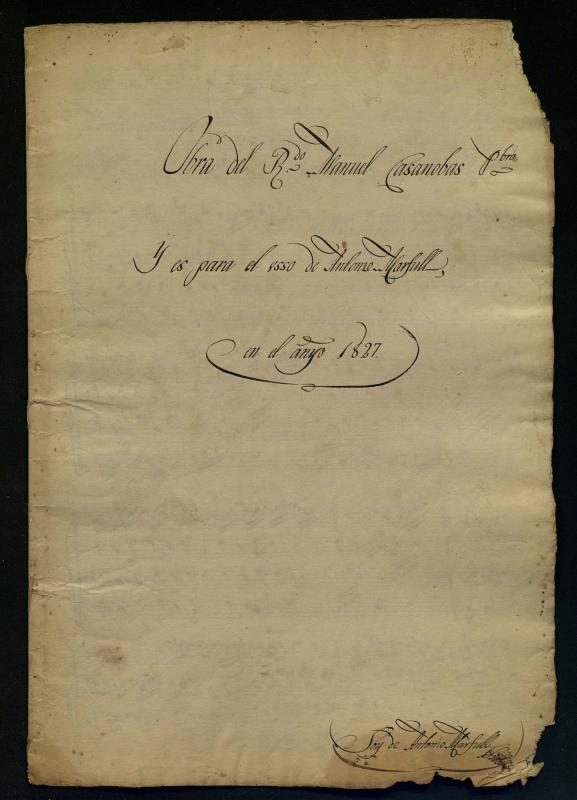 Obra del R.do Manuel Casanobas Pbro
Y es para el vsso de Antonio Marfull,
en el año 1827.
Soy de Antonio Marfull